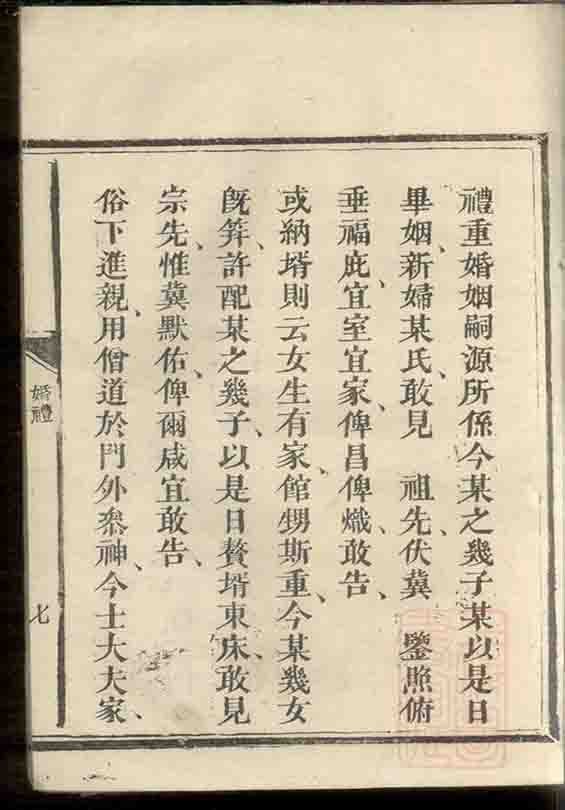 禮重婚姻嗣源所係今某之幾子某以是日
畢姻、新婦某氏、敢見　祖先、伏冀　鑒照俯
垂福庇、宜室宜家、俾昌俾熾、敢告、
或納壻則云女生有家、館甥斯重、今某幾女
旣筓、許配某之幾子、以是日贅壻東床、敢見
宗先、惟冀默佑、俾爾咸宜敢告、
俗下進親、用僧道於門外叅神、今士大夫家、
婚禮
七